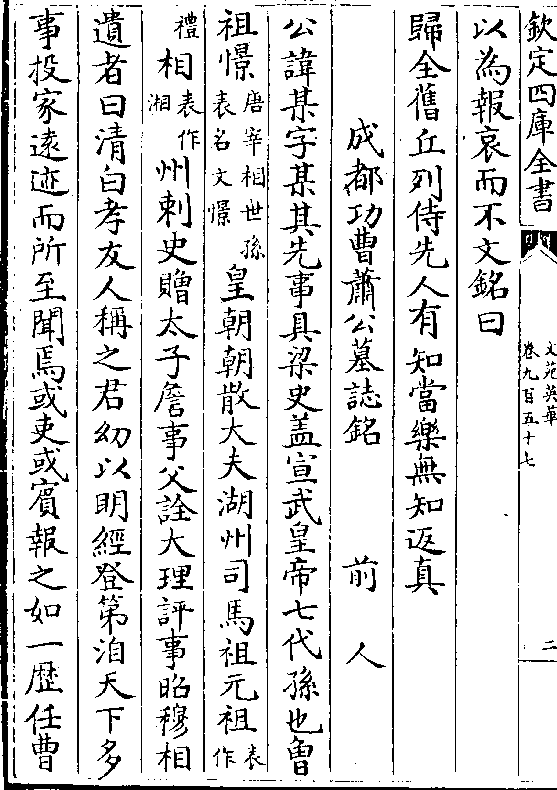 欽定四庫全書
文苑英華
卷九百五十七
二
以為報哀而不文銘曰
歸全舊丘列侍先人有知當樂無知返真
成都功曹蕭公墓誌銘 前人
公諱某字某其先事具梁史盖宣武皇帝七代孫也曾
祖憬唐宰相世孫表名文憬皇朝朝散大夫湖州司馬祖元祖表作
禮相表作湘州刺史贈太子詹事父詮大理評事昭穆相
遺者曰清白孝友人稱之君幼以明經登第洎天下多
事投家遠迹而所至聞焉或吏或賓報之如一歴任曹